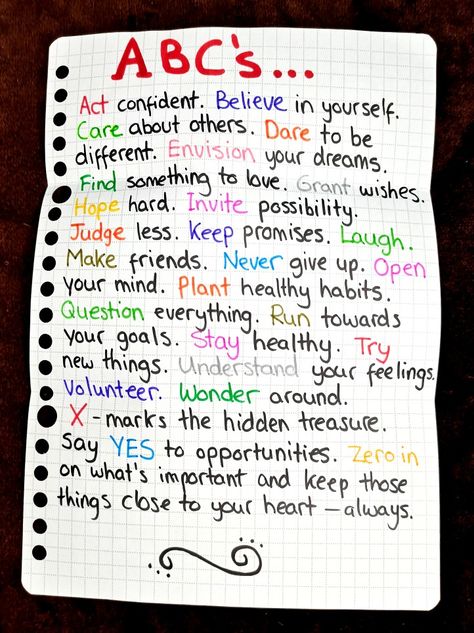 ABC's...
Act confident. Believe in yourself.
Care about others. Dare to be
different. Envision your dreams.
Find something to love. Grant wishes.
Hope hard. Invite possibility.
Judge less. Keep promises. Laugh.
Make friends. Never give up. Open
your mind. Plant healthy habits.
Question everything. Run towards
your goals. Stay healthy. Try
new things. Understand your feelings.
Volunteer. Wonder around.
X-marks the hidden treasure.
Say YES to opportunities. Zero in
on what's important and keep those
things close to your heart — always.